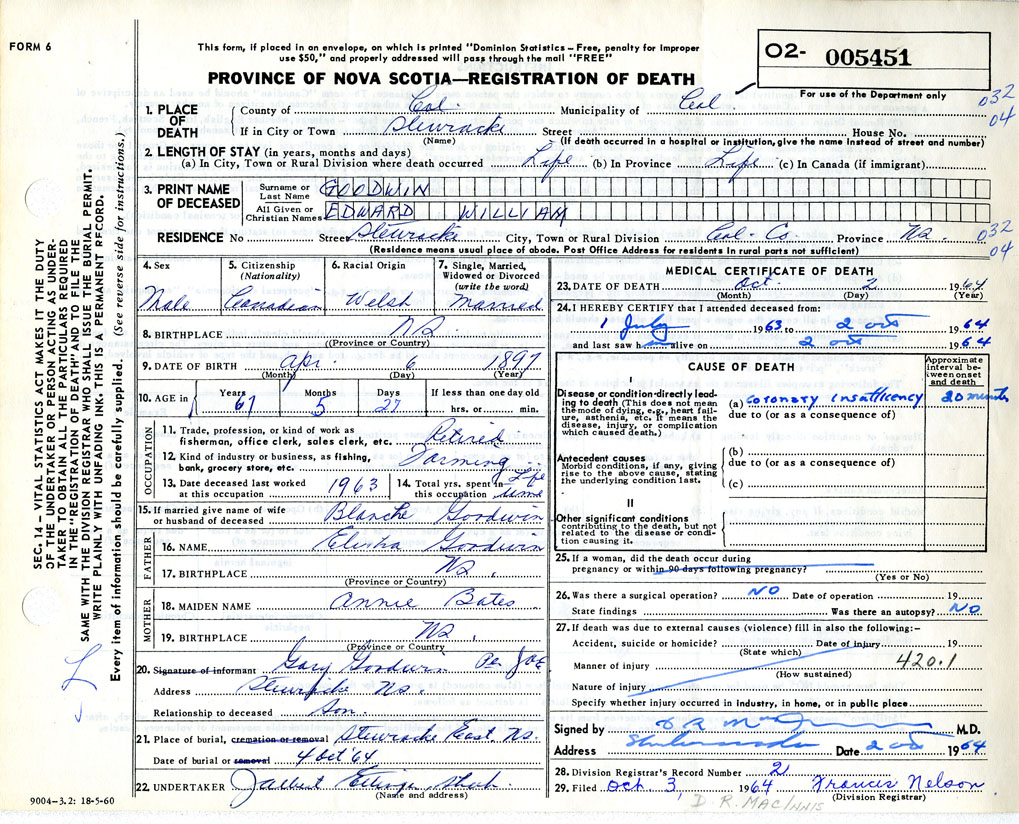 FORM 6
This form, if placed in an envelope, on which is printed "Dominion Statistics – Free, penalty for improper
use $50," and properly addressed will pass through the mail "FREE"
PROVINCE OF NOVA SCOTIA—REGISTRATION OF DEATH
O2- 005451
For use of the Department only
032
04
1. PLACE OF DEATH { County of Col. Municipality of Col.
If in City or Town Stewiacke Street House No.
(Name) (If death occurred in a hospital or institution, give the name instead of street and number)
2. LENGTH OF STAY (in years, months and days)
(a) In City, Town or Rural Division where death occurred Life (b) In Province Life (c) In Canada (if immigrant)
3. PRINT NAME OF DECEASED { Surname or Last Name GOODWIN
All Given or Christian Names EDWARD WILLIAM
RESIDENCE No Street Stewiacke City, Town or Rural Division Col. Co. Province NS.
032
04
(Residence means usual place of abode. Post Office Address for residents in rural parts not sufficient)
4. Sex
Male
5. Citizenship
(Nationality)
Canadian
6. Racial Origin
Welsh
7. Single, Married,
Widowed or Divorced
(write the word)
Married
8. BIRTHPLACE NS
(Province or Country)
9. DATE OF BIRTH Apr. 6 1897
(Month) (Day) (Year)
10. AGE in { Years Months Days If less than one day old
67 5 27 hrs. or min.
OCCUPATION
11. Trade, profession, or kind of work as
fisherman, office clerk, sales clerk, etc. Retired
12. Kind of industry or business, as fishing,
bank, grocery store, etc. Farming
13. Date deceased last worked
at this occupation 1963
14. Total yrs. spent in
this occupation Life time
15. If married give name of wife
or husband of deceased Blanche Goodwin
FATHER
16. NAME Elisha Goodwin
17. BIRTHPLACE NS.
(Province or Country)
MOTHER
18. MAIDEN NAME Annie Bates
19. BIRTHPLACE NS.
(Province or Country
20. Signature of informant Gary Goodwin Per JOE
Address Stewiacke NS.
Relationship to deceased Son.
21. Place of burial, cremation or removal Stewiacke East, NS.
Date of burial or removal 4 Oct '64
22. UNDERTAKER
(Name and address)
9004–3.2: 18-5-60
MEDICAL CERTIFICATE OF DEATH
23. DATE OF DEATH Oct. 2 1964
(Month) (Day) (Year)
24. I HEREBY CERTIFY that I attended deceased from:
1 July 1963 to 2 Oct 1964
and last saw him alive on 2 Oct 1964
CAUSE OF DEATH
Approximate
interval be-
tween onset
and death
I
Disease or condition directly lead-
ing to death (This does not mean
the mode of dying, e.g., heart fail-
ure, asthenia, etc. It means the
disease, injury, or complication
which caused death.)
(a) coronary insufficency 20 minutes
due to (or as a consequence of)
Antecedent causes
Morbid conditions, if any, giving
rise to the above cause, stating
the underlying condition last.
(b)
due to (or as a consequence of)
(c)
II
Other significant conditions
contributing to the death, but not
related to the disease or condi-
tion causing it.
25. If a woman, did the death occur during
pregnancy or within 90 days following pregnancy?
(Yes or No)
26. Was there a surgical operation? NO Date of operation 19
State findings Was there an autopsy? NO
27. If death was due to external causes (violence) fill in also the following:-
Accident, suicide or homicide? Date of injury 19
(State which)
Manner of injury 420.1
(How sustained)
Nature of injury
Specify whether injury occurred in industry, in home, or in public place
Signed by M.D.
Address Date 2 Oct 1964
28. Division Registrar's Record Number 2
29. Filed Oct. 3, 1964 Francis Nelson
(Division Registrar)
D. R. MACINNIS
SEC. 14 – VITAL STATISTICS ACT MAKES IT THE DUTY
OF THE UNDERTAKER OR PERSON ACTING AS UNDER-
TAKER TO OBTAIN ALL THE PARTICULARS REQUIRED
IN THE "REGISTRATION OF DEATH" AND TO FILE THE
SAME WITH THE DIVISION REGISTRAR WHO SHALL ISSUE THE BURIAL PERMIT.
WRITE PLAINLY WITH UNFADING INK. THIS IS A PERMANENT RECORD.
Every item of information should be carefully supplied. (See reverse side for instructions.)